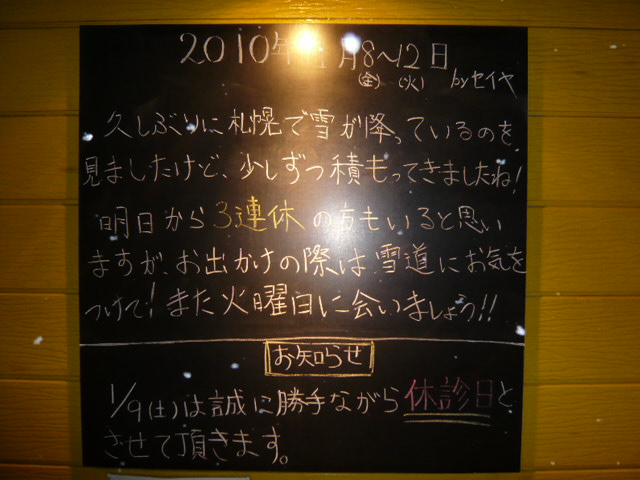 2010年1月8~12日
(金) (火) byセイヤ
久しぶりに札幌で雪が降っているのを
見ましたけど、少しずつ積もってきましたね!
明日から3連休の方もいると思い
ますが、お出かけの際は雪道にお気を
つけて!また火曜日に会いましょう!!
お知らせ
1/9(土)は誠に勝手ながら休診日と
させて頂きます。